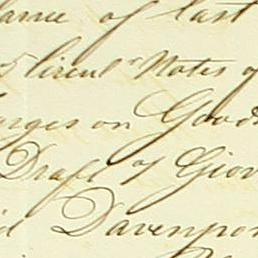 ance of last
5 Circul^r Notes of
arges on Goods
Draft of Giov
d Davenpor